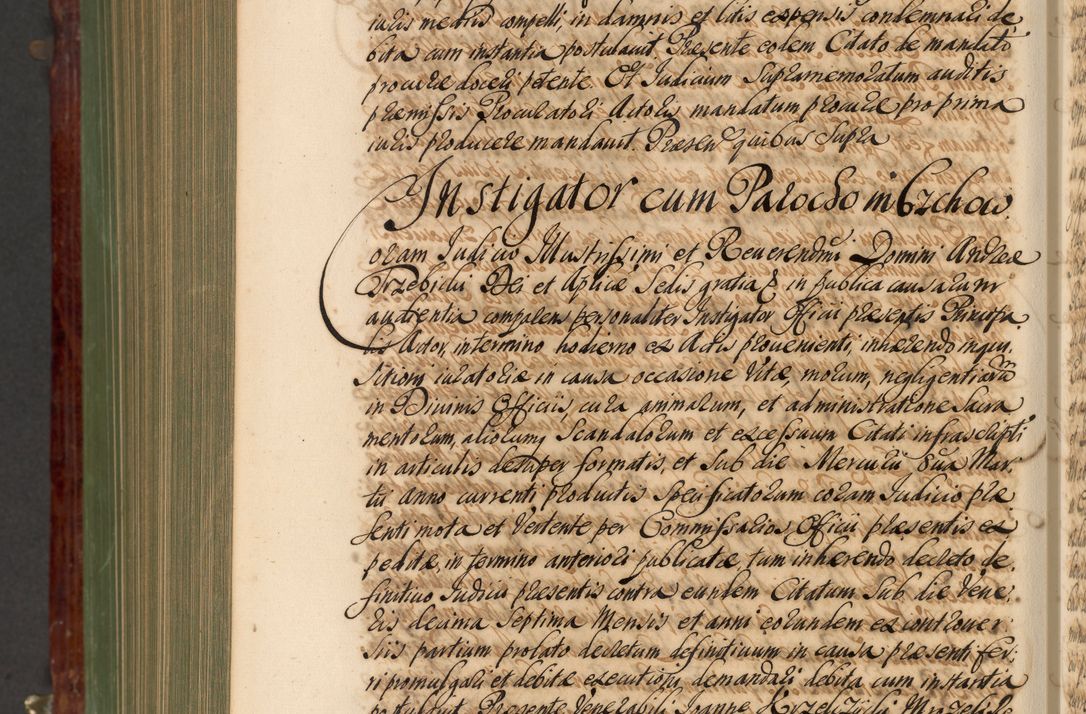 iuris mediis compelli, in damnis et litis expensis condemnari de
bita cum instantia postulavit. Præsente eodem Citato de mandato
procuræ doceri petente. Et Judicium Supramemoratum auditis
præmissis Procuratori Actoris mandatum procuræ pro prima
iuris producere mandavit. Præsen quibus supra
Instigator cum Parocho in Brzchow.
Coram Judicio Illustrissimi et Reverendmi Domini Andreæ
Trzebicki Dei et Aplicæ Sedis gratia & in publica causarum
audientia comparens personaliter Instigator Officii præsentis Principa
lis Actor, in termino hodierno ex Actis provenienti, inhærendo inqui
sitioni iuratoriæ in causa occasione vitæ, morum, negligentiarum
in Divinis Officiis, cura animarum, et administratione Sacra
mentorum, aliorumq scandalorum et excessuum Citati infrascripti
in articulis desuper formatis, et sub die Mercurii 8va Mar
tii anno currenti productis specificatorum coram Judicio præ
senti mota et vertente per Commissarios Officii præsentis ex
peditæ, in termino anteriori publicatæ, tum inhærendo decreto de
finitivo Judicii præsentis contra eundem Citatum sub die Vene
ris decima Septima Mensis et anni eorundem ex controver
siis partium prolato decretum definitivum in causa præsenti fer
ri promulgari et debitæ executioni demandari debita cum instantia
postulavit. Præsente Venerabili Joanne